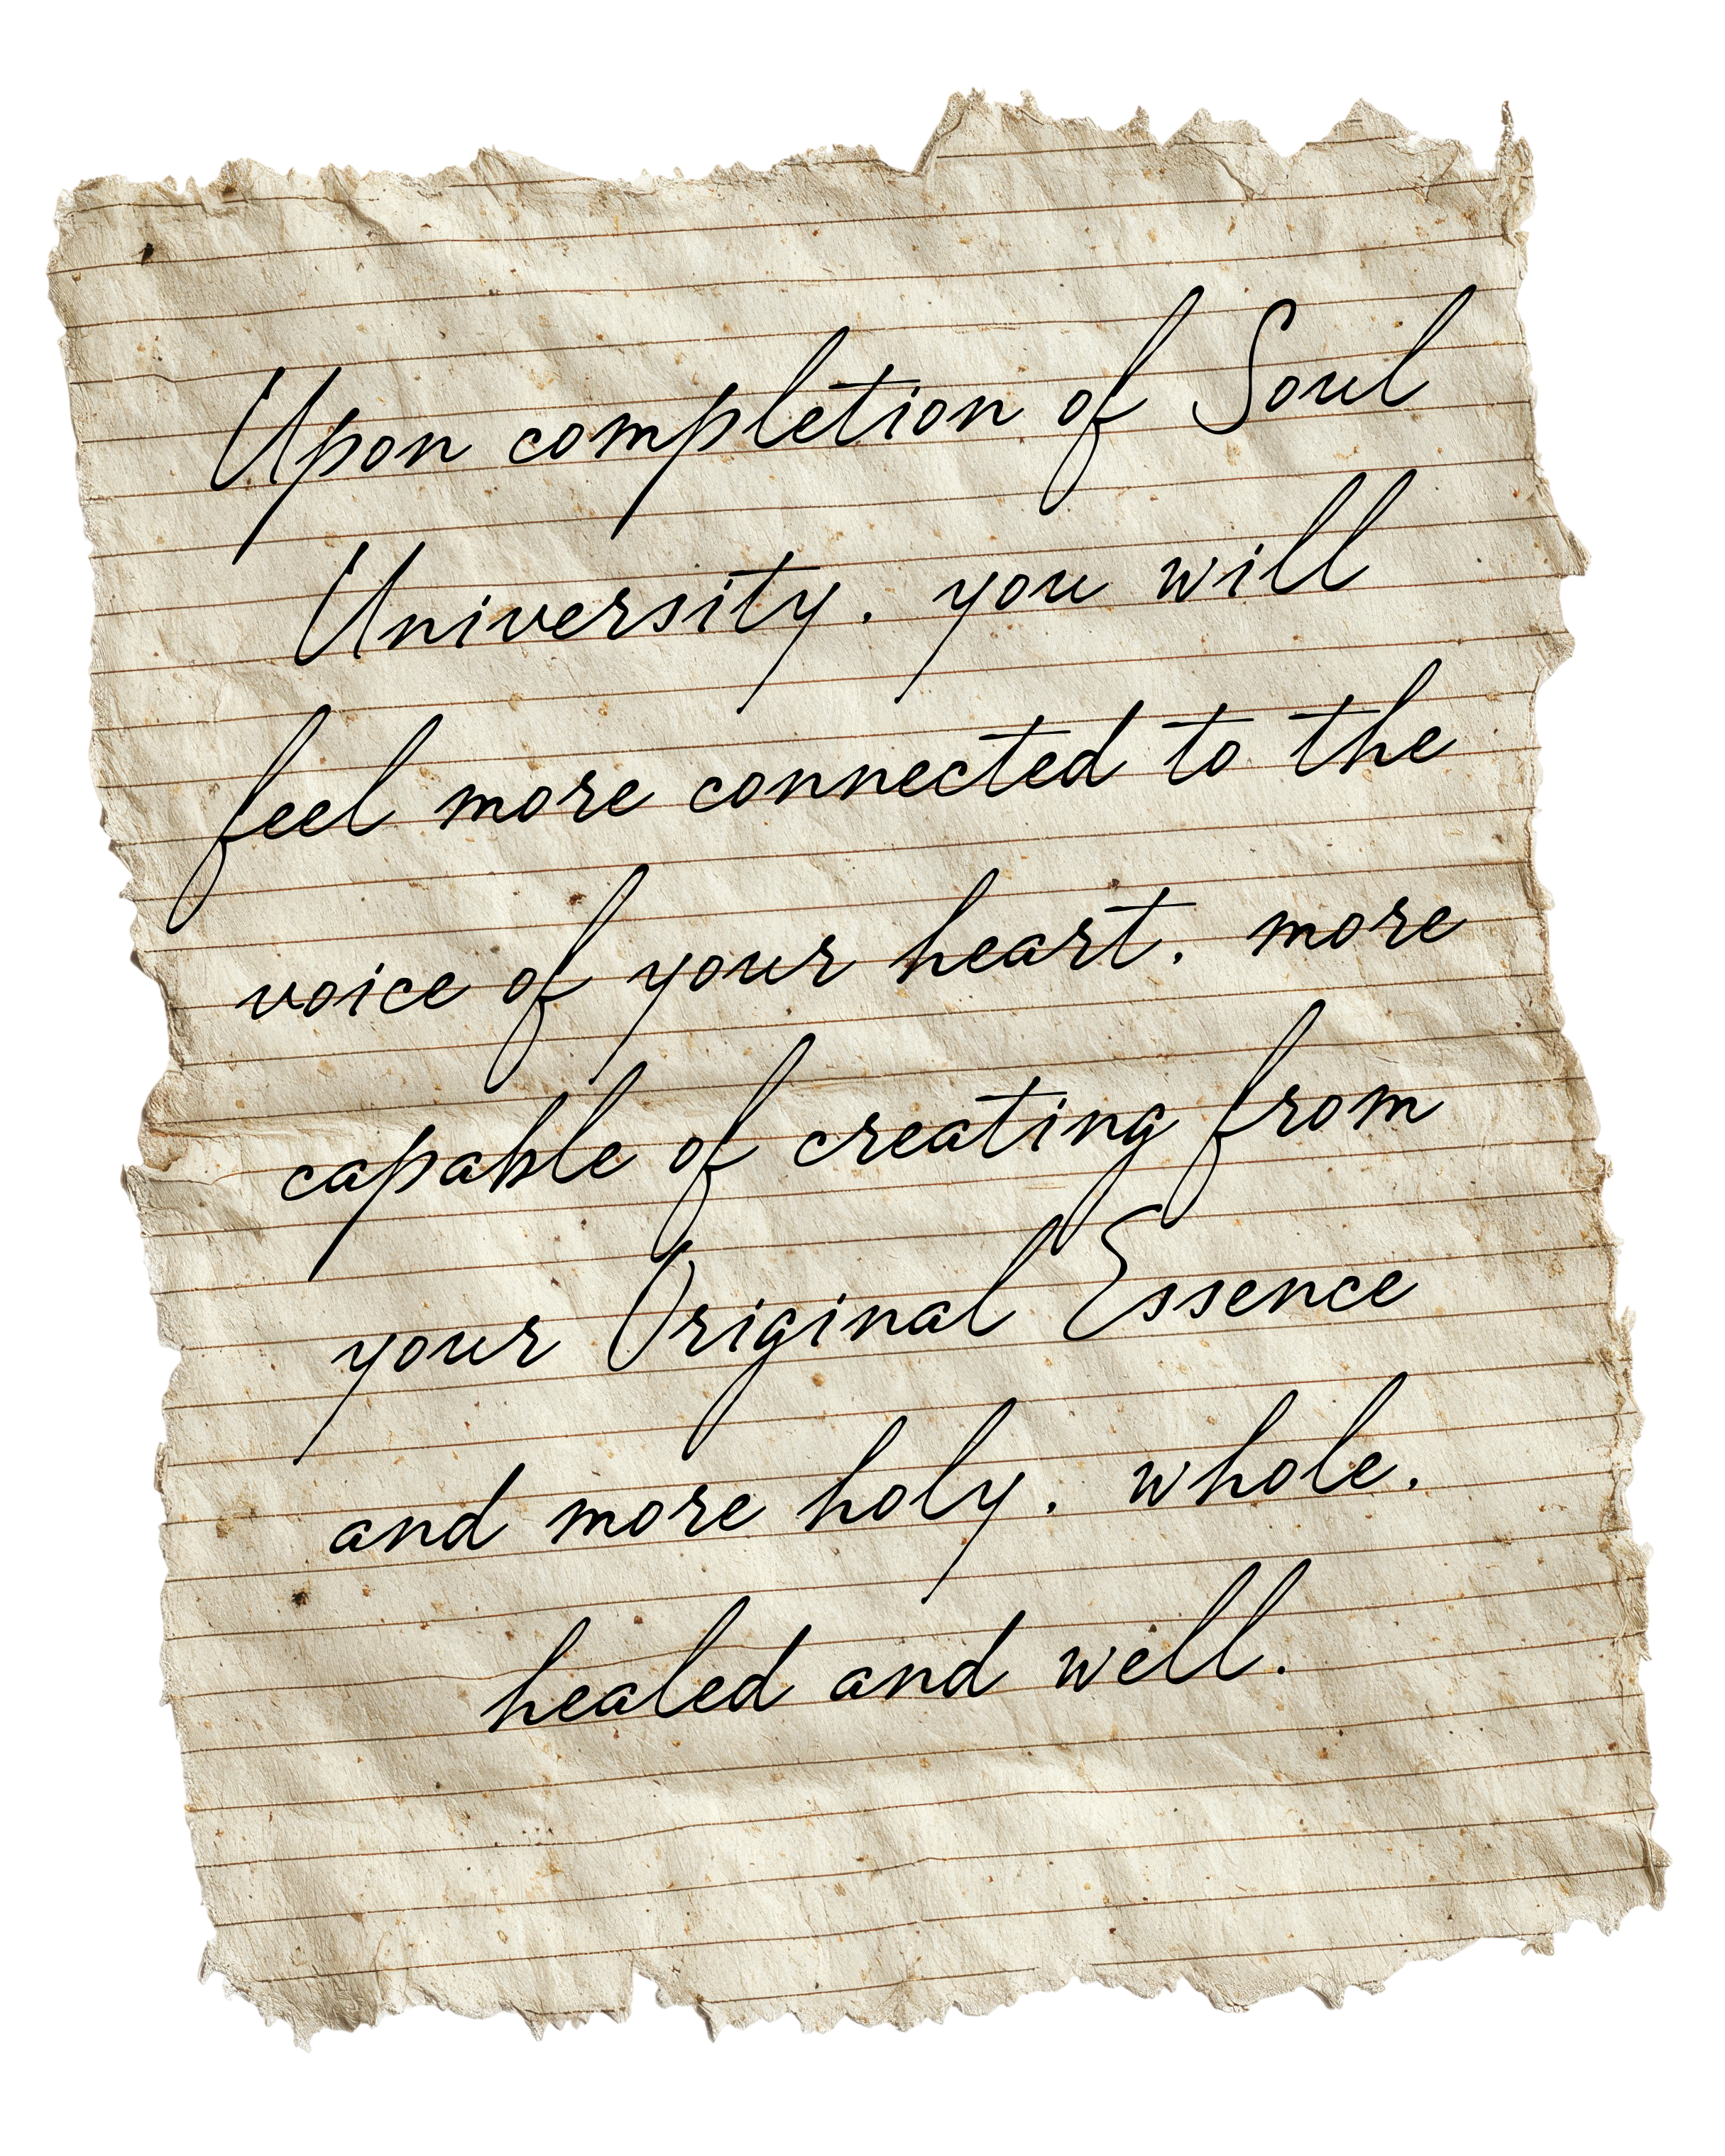 Upon completion of Soul
University, you will
feel more connected to the
voice of your heart, more
capable of creating from
your Original Essence
and more holy, whole,
healed and well.